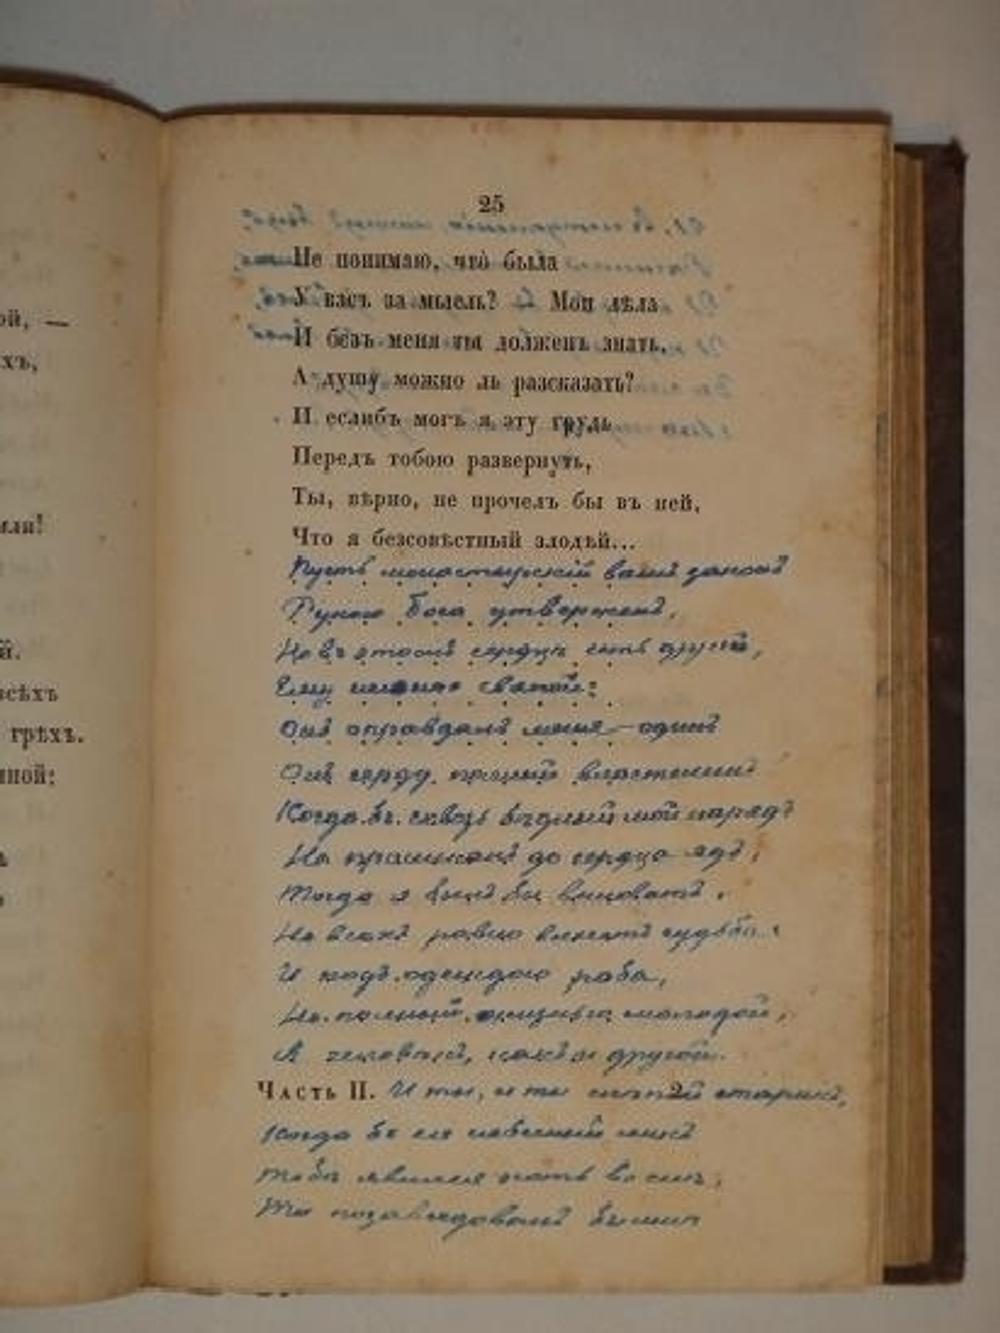 ой, —
хъ,
мля!
й.
всѣхъ
грѣхъ.
нной:
ъ
25
Не понимаю, что была
У васъ за мысль? Мои дѣла
И безъ меня ты долженъ знать,
А душу можно ль разсказать?
И еслибъ могъ я эту грудь
Передъ тобою развернуть,
Ты, вѣрно, не прочелъ бы въ ней,
Что я безсовѣстный злодѣй...
Пусть монастырскій вашъ законъ
Рукою Бога утвержденъ,
Но въ этомъ сердцѣ есть другой,
Ему не менѣе святой:
Онъ оправдалъ меня — одинъ
Онъ сердца полный властелинъ
Когда бъ сквозь бѣдный мой нарядъ
Не проникалъ до сердца ядъ,
Тогда я былъ бы виноватъ.
Но всѣхъ равно влечетъ судьба:
И подъ одеждою раба,
Но полный жизнью молодой,
Я человѣкъ, какъ и другой.
Часть II. И ты, и ты слѣпой старикъ,
Когда бъ ея небесный ликъ
Тебѣ явился хоть во снѣ,
Ты позавидовалъ бы мнѣ
2